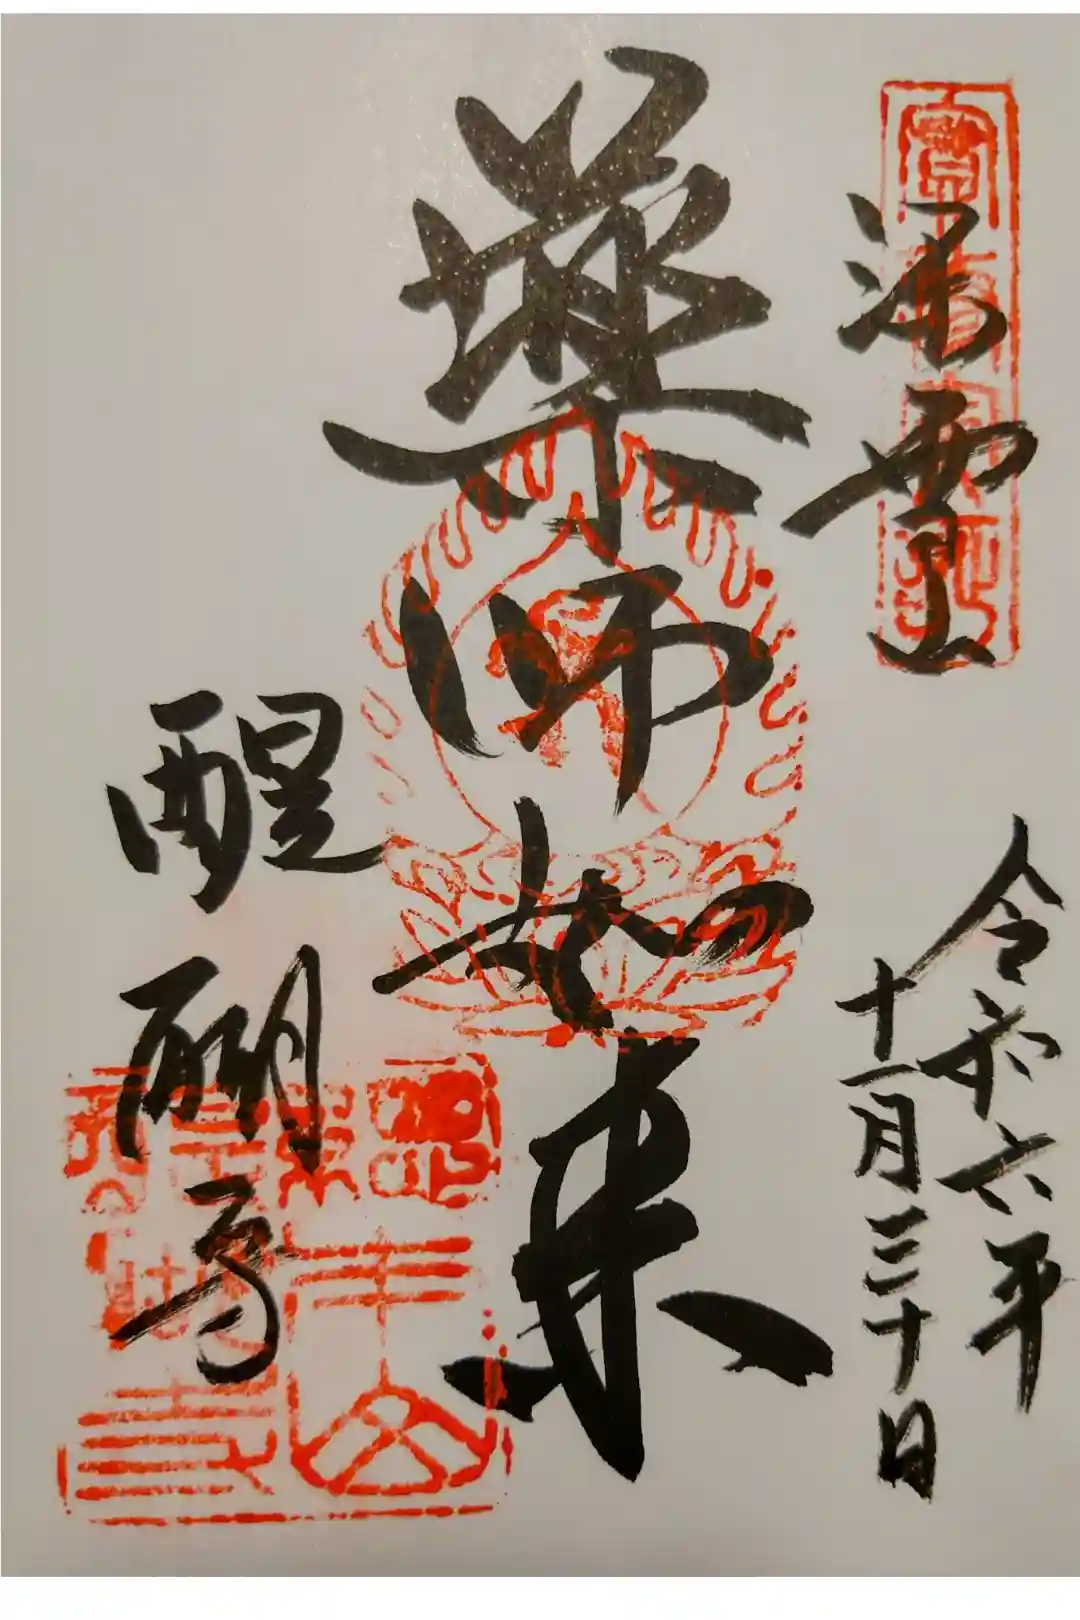 深雪山
令和六年
十一月三十日
薬師如来
醍醐寺